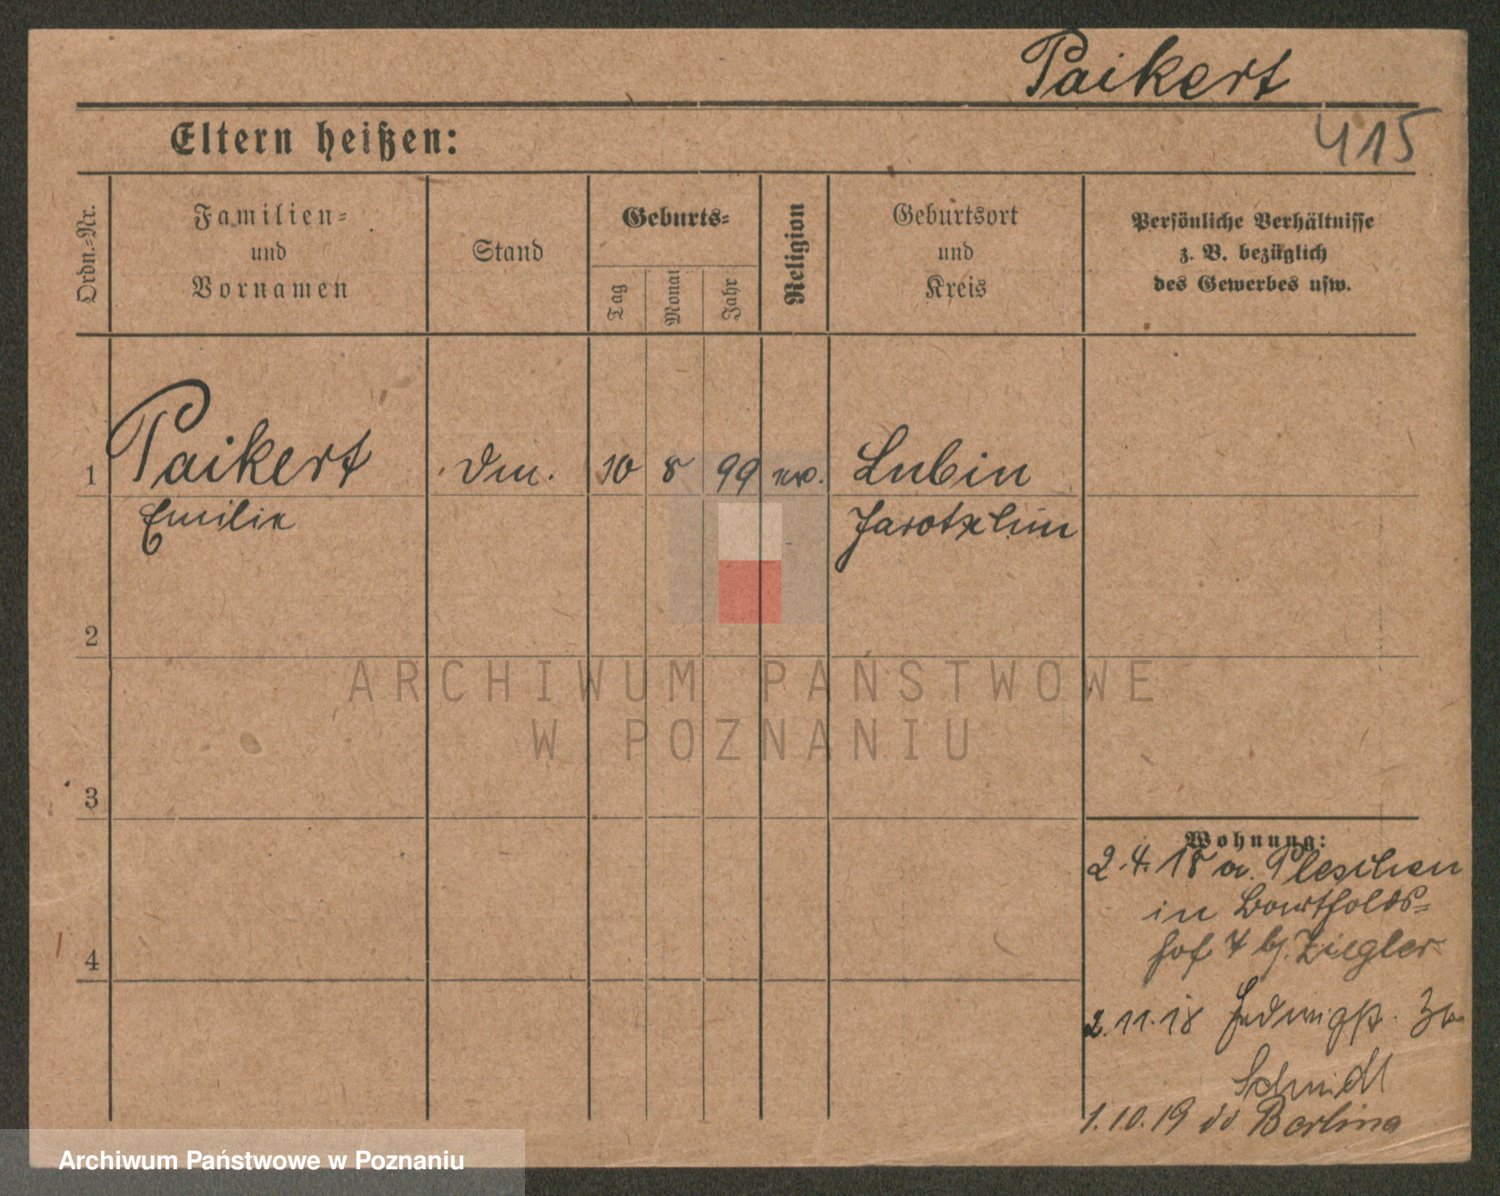 Paikert
415
Eltern heißen:
Ordn.-Nr.
Familien-
und
Vornamen
Stand
Geburts-
Tag
Monat
Jahr
Religion
Geburtsort
und
Kreis
Persönliche Verhältnisse
z. B. bezüglich
des Gewerbes usw.
1 Paikert 10 8 99 Lubin
Emilie Jarotschin
2
3
4
Wohnung:
2.4.18 a. Pleschen
in Barthold-
hof 7 bj. Ziegler
2.11.18 Hedwigst.
Schmidt
1.10.19 do Berlina
ARCHIWUM PAŃSTWOWE
W POZNANIU
Archiwum Państwowe w Poznaniu